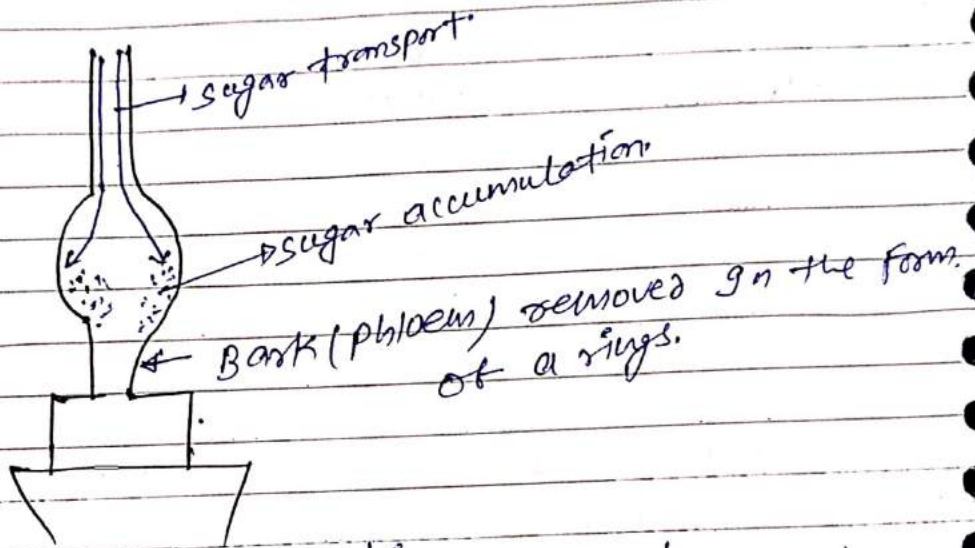 sugar transport.
sugar accumulation.
Bark (Phloem) removed In the form.
of a rings.